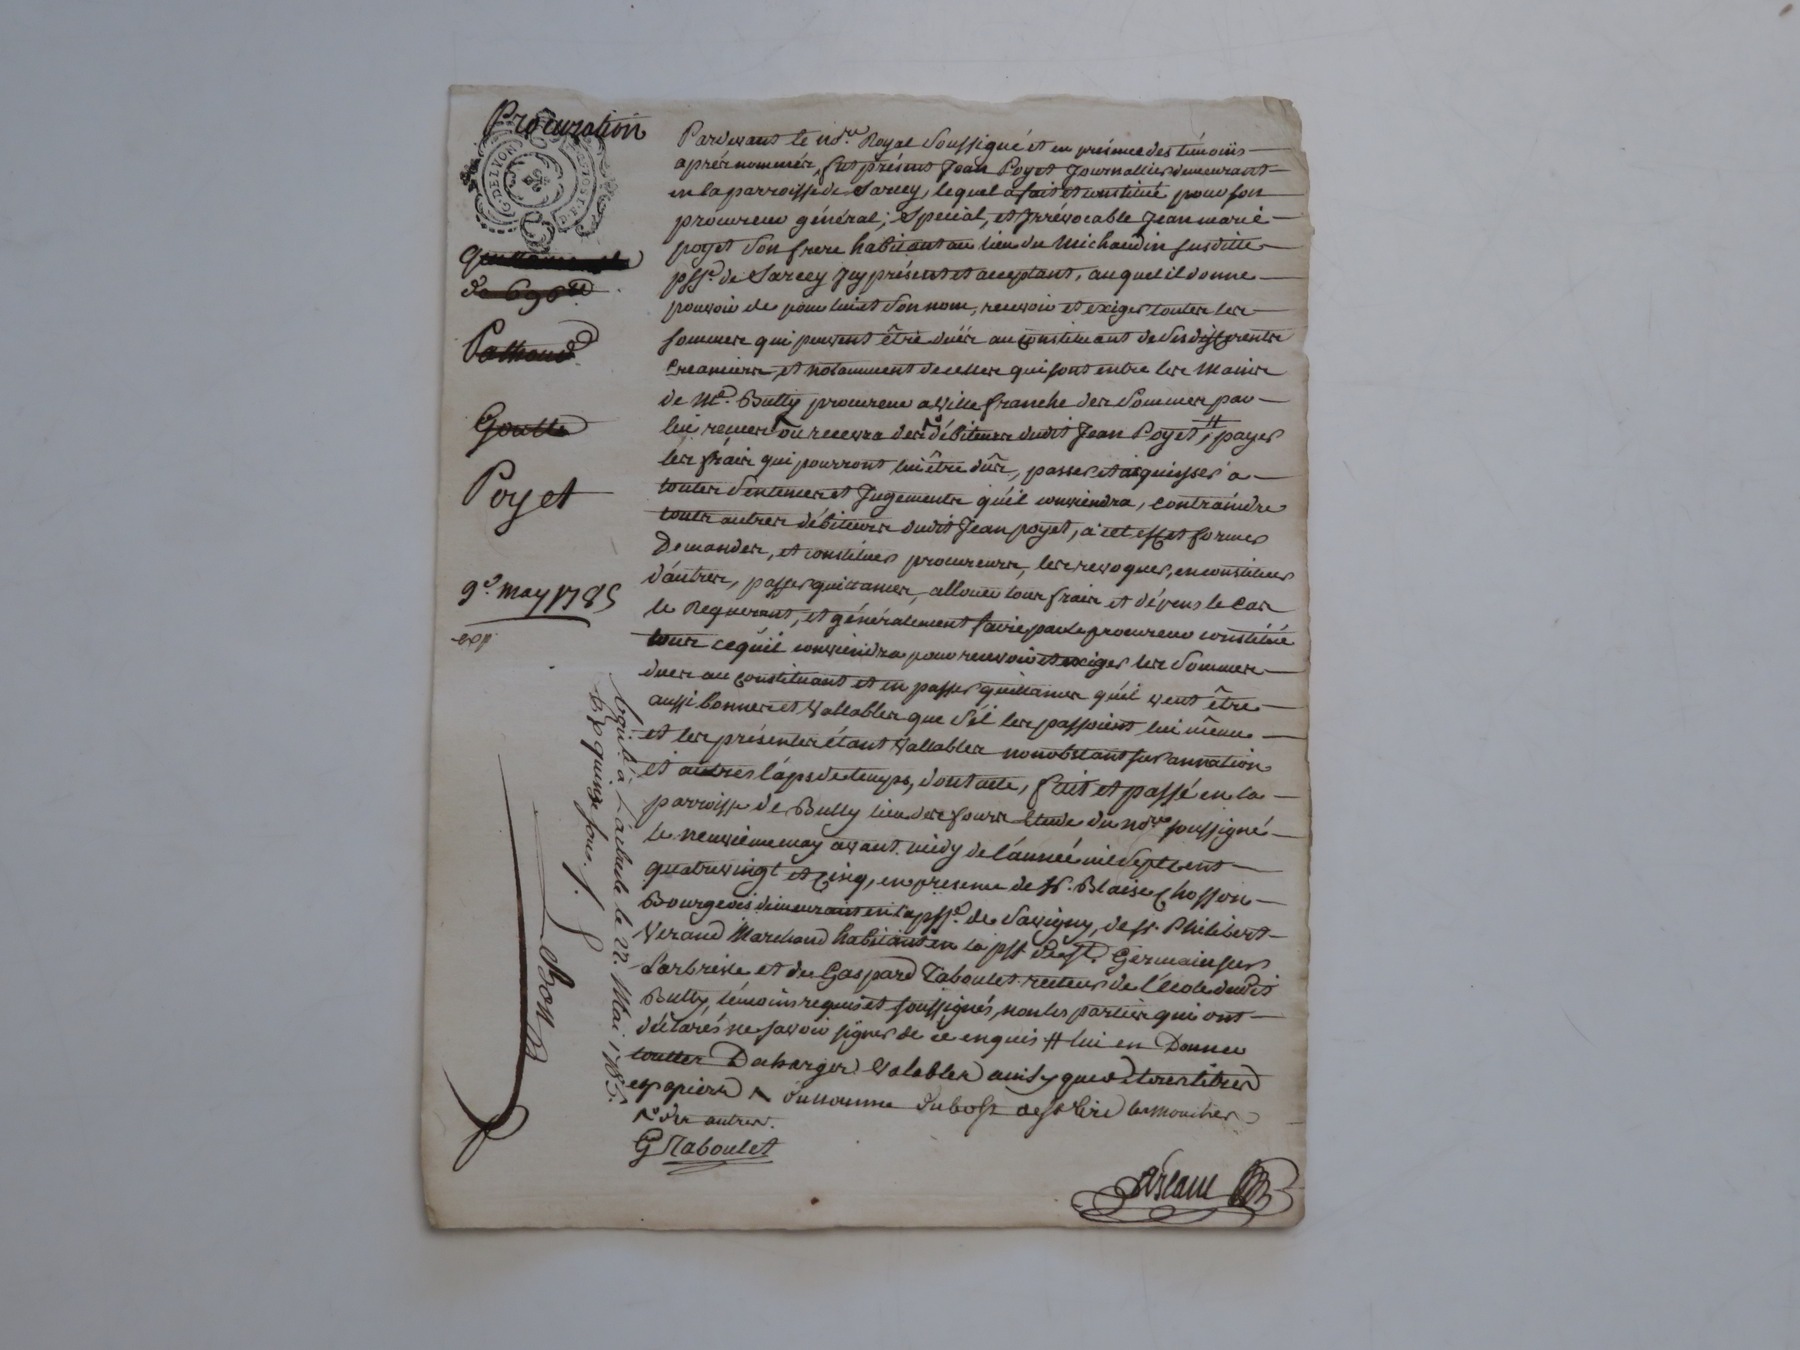 Procuration
G. DE LYON
Quittance
de 696 tt
Pathoud
Goutte
Poyet
9e. may 1785
exp.
Pardevant le no.re Royal soussigné et en présence des témoins
après nommés, fut présent Jean Poyet Journallier demeurant
en la parroisse de Sarcey, lequel a fait et constitué pour son
procureur général, spécial, et Irrévocable Jean marie
poyet son frere habitant au lieu du Michaudin susditte
psse. de Sarcey Icy présent et acceptant, auquel il donne
pouvoir de pour lui et son nom, recevoir et exiger toutes les
sommes qui peuvent être dües au constituant de ses différents
creanciers, et notamment de celles qui sont entre les mains
de Me. Bully procureur a ville franche des sommes par
lui recues ou recevra des débiteurs dudit Jean Poyet, # payer
les frais qui pourront lui être dûs, passer et acquiesser a
toutes sentences et Jugements qu'il conviendra, contraindre
touts autres débiteurs dudit Jean poyet, a cet effet former
Demandes, et constituer procureurs, les revoquer, en constituer
d'autres, passer quittances, allouer tous frais et dépens le cas
le Requerant, et généralement faire par le procureur constitué
tout ce qu'il conviendra pour recevoir et exiger les sommes
dues au constituant et en passer quittances qu'il veut être
aussi bonnes et vallables que s'il les passoient lui même
et les présentes étant vallables nonobstant surannation
et autres laps de temps, dont acte, fait et passé en la
parroisse de Bully lieu des fours Etude du no.re soussigné
le neuvieme may avant midy de l'année mil sept cent
quatre vingt et cinq, en presence de sr. Blaise Chosson
Bourgeois demeurant en la psse. de Savigny, de sr. Philibert
Verand Marchand habitant en la psse de St. Germain sur
Larbresle et de Gaspard Taboulet recteur de l'école dudit
Bully, témoins requis et soussignés, non les parties qui ont
déclarés ne savoir signer de ce enquis # lui en Donner
touttes Décharges valables ainsy que de tous titres
et papiers
des autres.
G Taboulet
le 22. Mai 1785.
quinze sous.